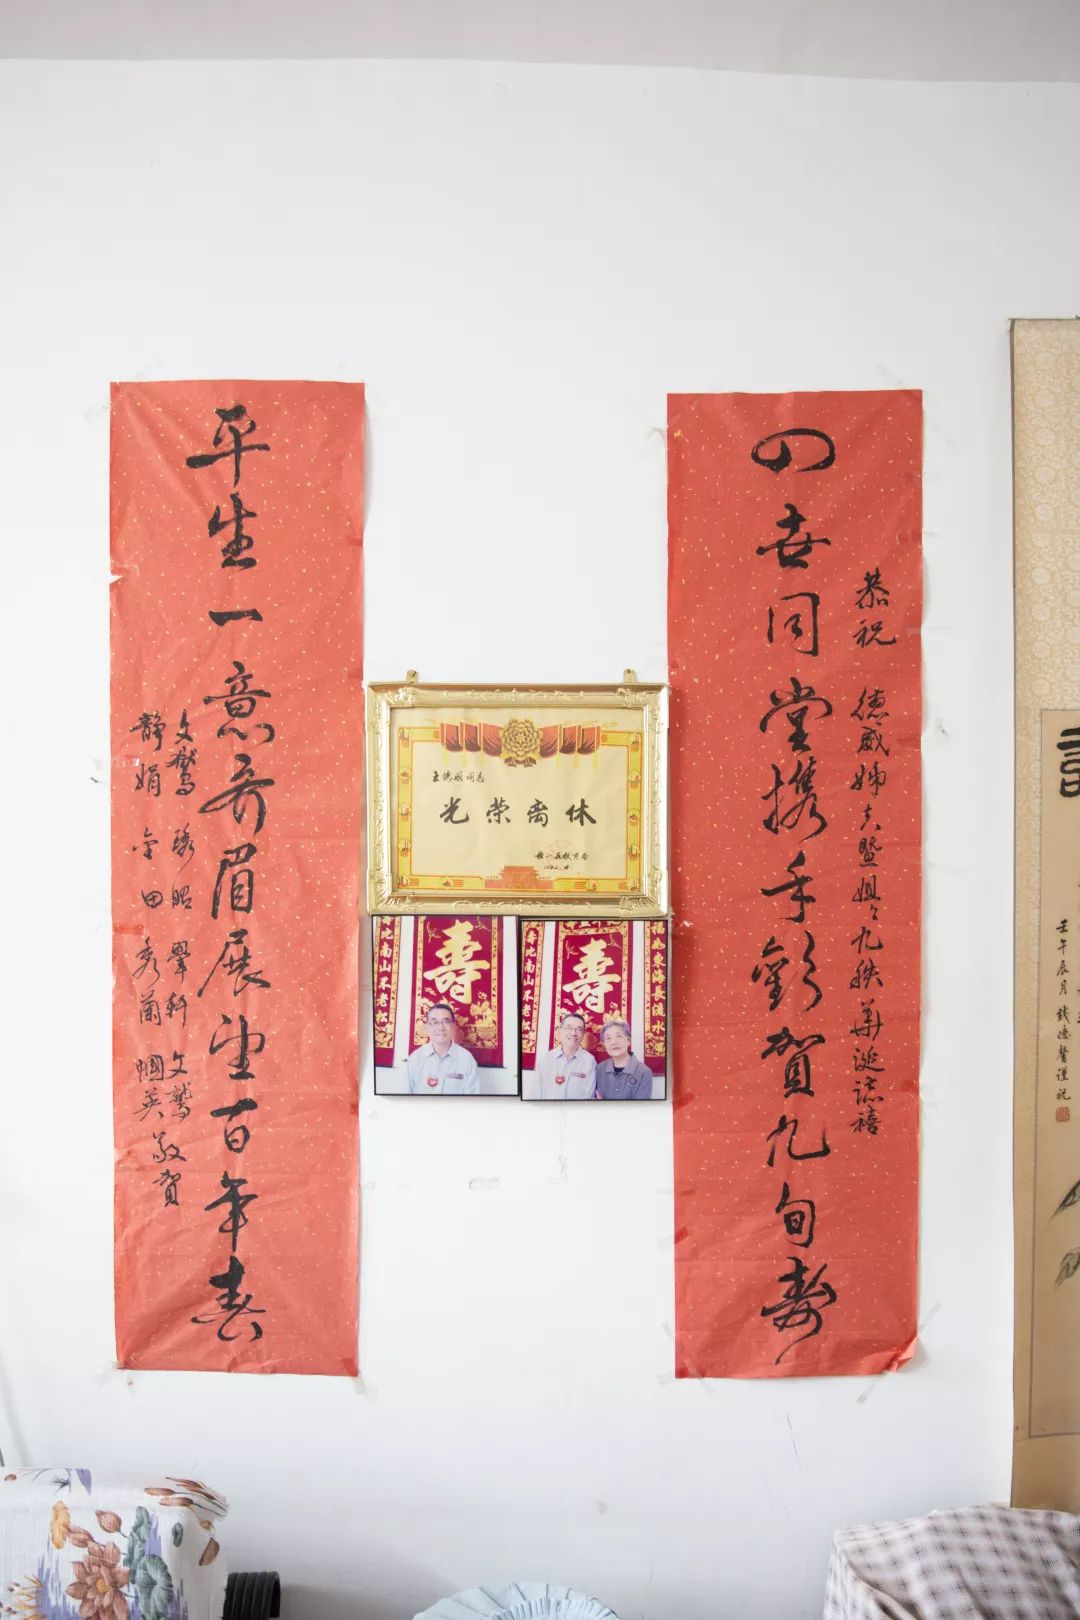 四世同堂携手欢贺九旬寿
恭祝 德威姊夫暨姐々九秩华诞诸禧
平生一意齐眉展望百年春
静娟 金田 秀兰 帼英 敬贺
光荣离休
寿比南山不老松
寿
寿比南山不老松
寿
福如东海长流水
壬午辰月 钱德馨谨祝